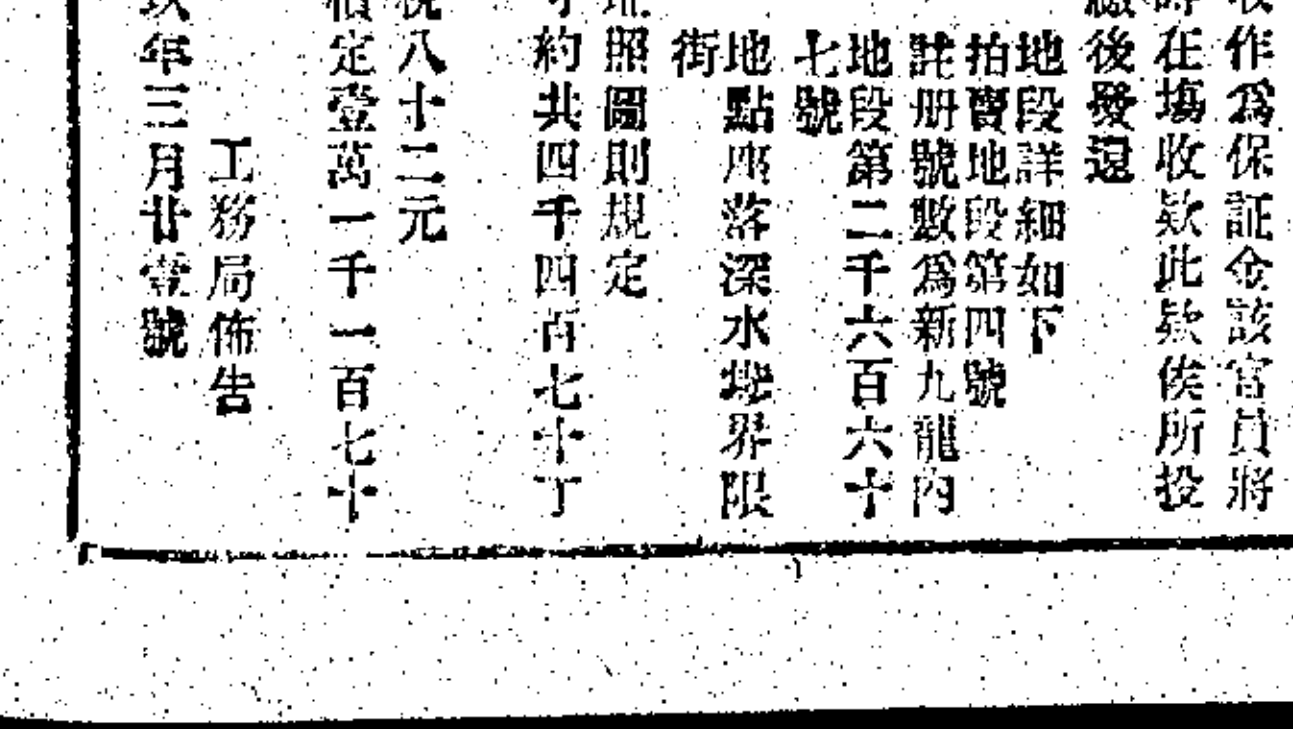 作爲保証金該官員將
在塲收欵此欵俟所投
後發還
地段詳細如下
拍賣地段第四號
註册號數爲新九龍內
地段第二千六百六十
七號
地點座落深水埗界限
街
照圖則規定
約共四千四百七十丁
八十二元
定壹萬一千一百七十
工務局佈告
年三月廿壹號